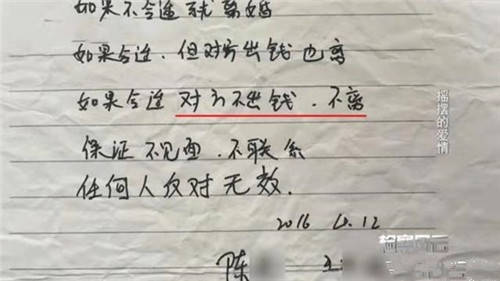 如果不合适就离婚
如果合适，但对方出钱也离
如果合适 对方不出钱．不离
保证不见面．不联系
任何人反对无效．
2016
12
陈
王
摇摆的爱情